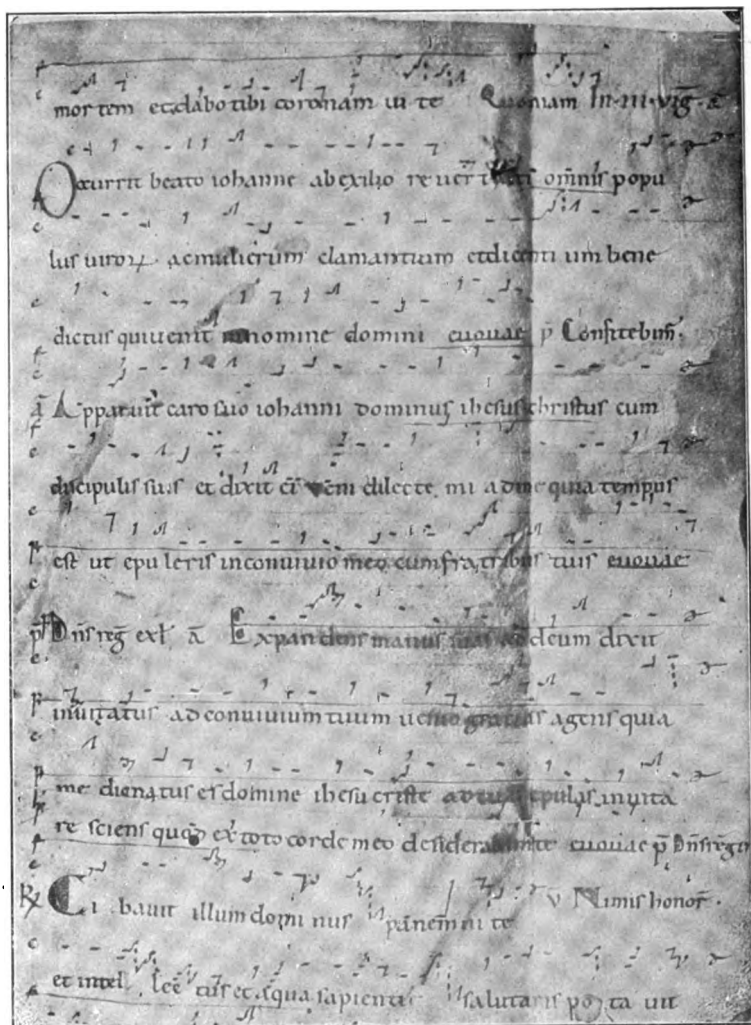 mortem et dabo tibi coronam uite Quoniam In·III·uig̅· a̅
Occurrit beato iohanne ab exilio reuerten omnis popu
lus uiroꝝ ac mulierum clamantium et dicentium bene
dictus qui uenit in nomine domini euouae p̅ Confitebim̅·
a̅ Apparuit caro suo iohanni dominus ihesus christus cum
discipulis suis et dixit ei ueni dilecte mi ad me quia tempus
est ut epuleris in conuiuio meo cum fratribus tuis euouae
p̅ Dn̅s reg̅ exl̅ a̅ Expandens manus suas ad deum dixit
inuitatus ad conuiuium tuum uenio gratias agens quia
me dignatus es domine ihesu criste ad tuas epulas inuita
re sciens quod ex toto corde meo desiderabam te euouae p̅ Dn̅s reg
℟ Cibauit illum dominus panem ui te v Nimis honor̅·
et intellectus et aqua sapienti salutaris pota uit